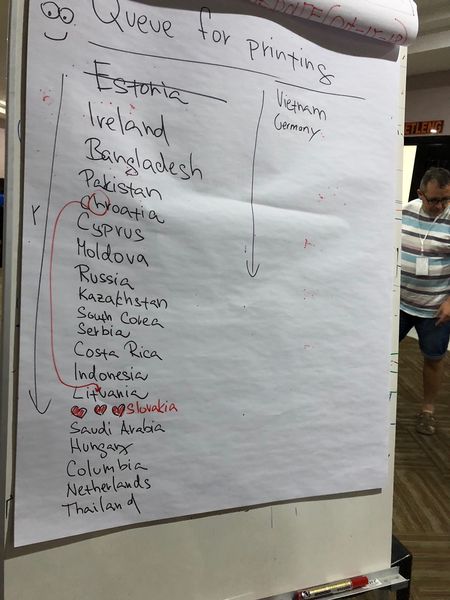 Queue for printing
Estonia
Ireland
Bangladesh
Pakistan
Chroatia
Cyprus
Moldova
Russia
Kazakhstan
South Corea
Serbia
Costa Rica
Indonesia
Lituania
Slovakia
Saudi Arabia
Hungary
Columbia
Netherlands
Thailand
Vietnam
Germany
ETLENG